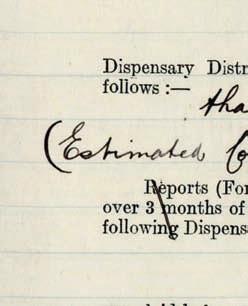 Dispensary Distr
follows :—
tha
(Estimated Co
Reports (For
over 3 months of
following Dispens